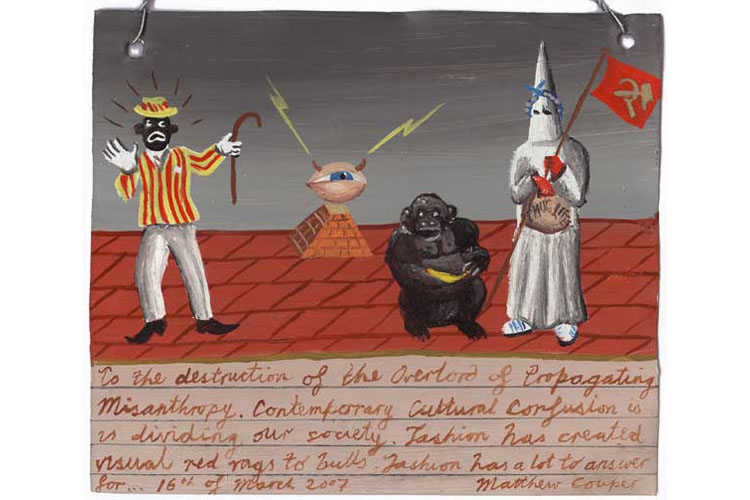 To the destruction of the Overlord of Propagating
Misanthropy. Contemporary Cultural Confusion is
is dividing our society. Fashion has created
visual red rags to bulls. Fashion has a lot to answer
for... 16th of March 2007 Matthew Couper